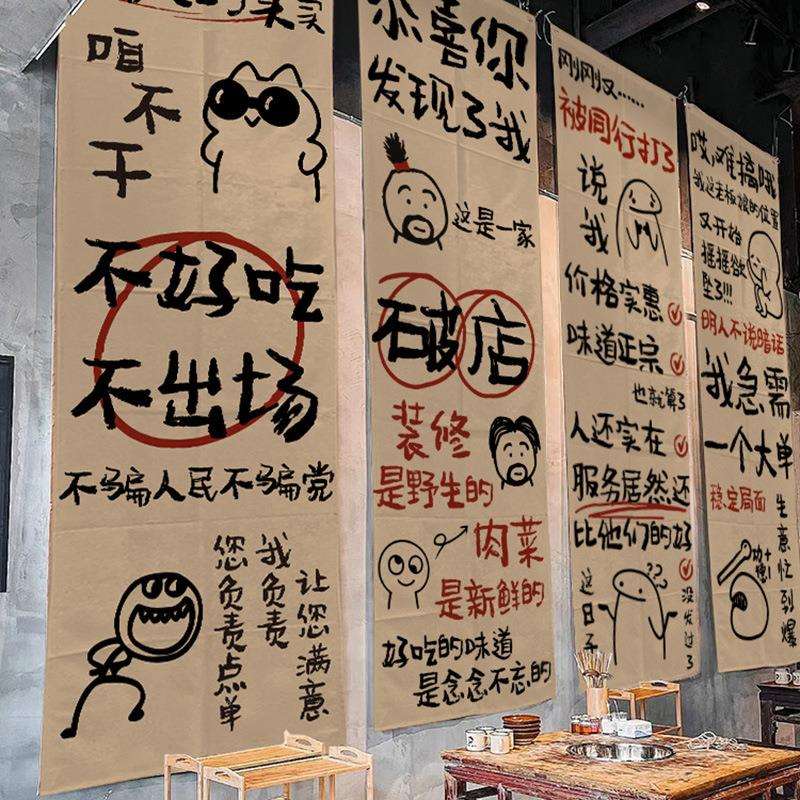 咱
不
干
不好吃
不出场
不骗人民不骗党
您负责点单
我负责
让您满意
恭喜你
发现了我
这是一家
破店
装修
是野生的
肉菜
是新鲜的
好吃的味道
是念念不忘的
刚刚又……
被同行打了
说
我
价格实惠
味道正宗
也就算了
人还实在
服务居然还
比他们的好
这日子
??
没发过了
哎,难搞哦
我这老板娘的位置
又开始
摇摇欲
坠了!!!
明人不说暗话
我急需
一个大单
稳定局面
生意忙到爆